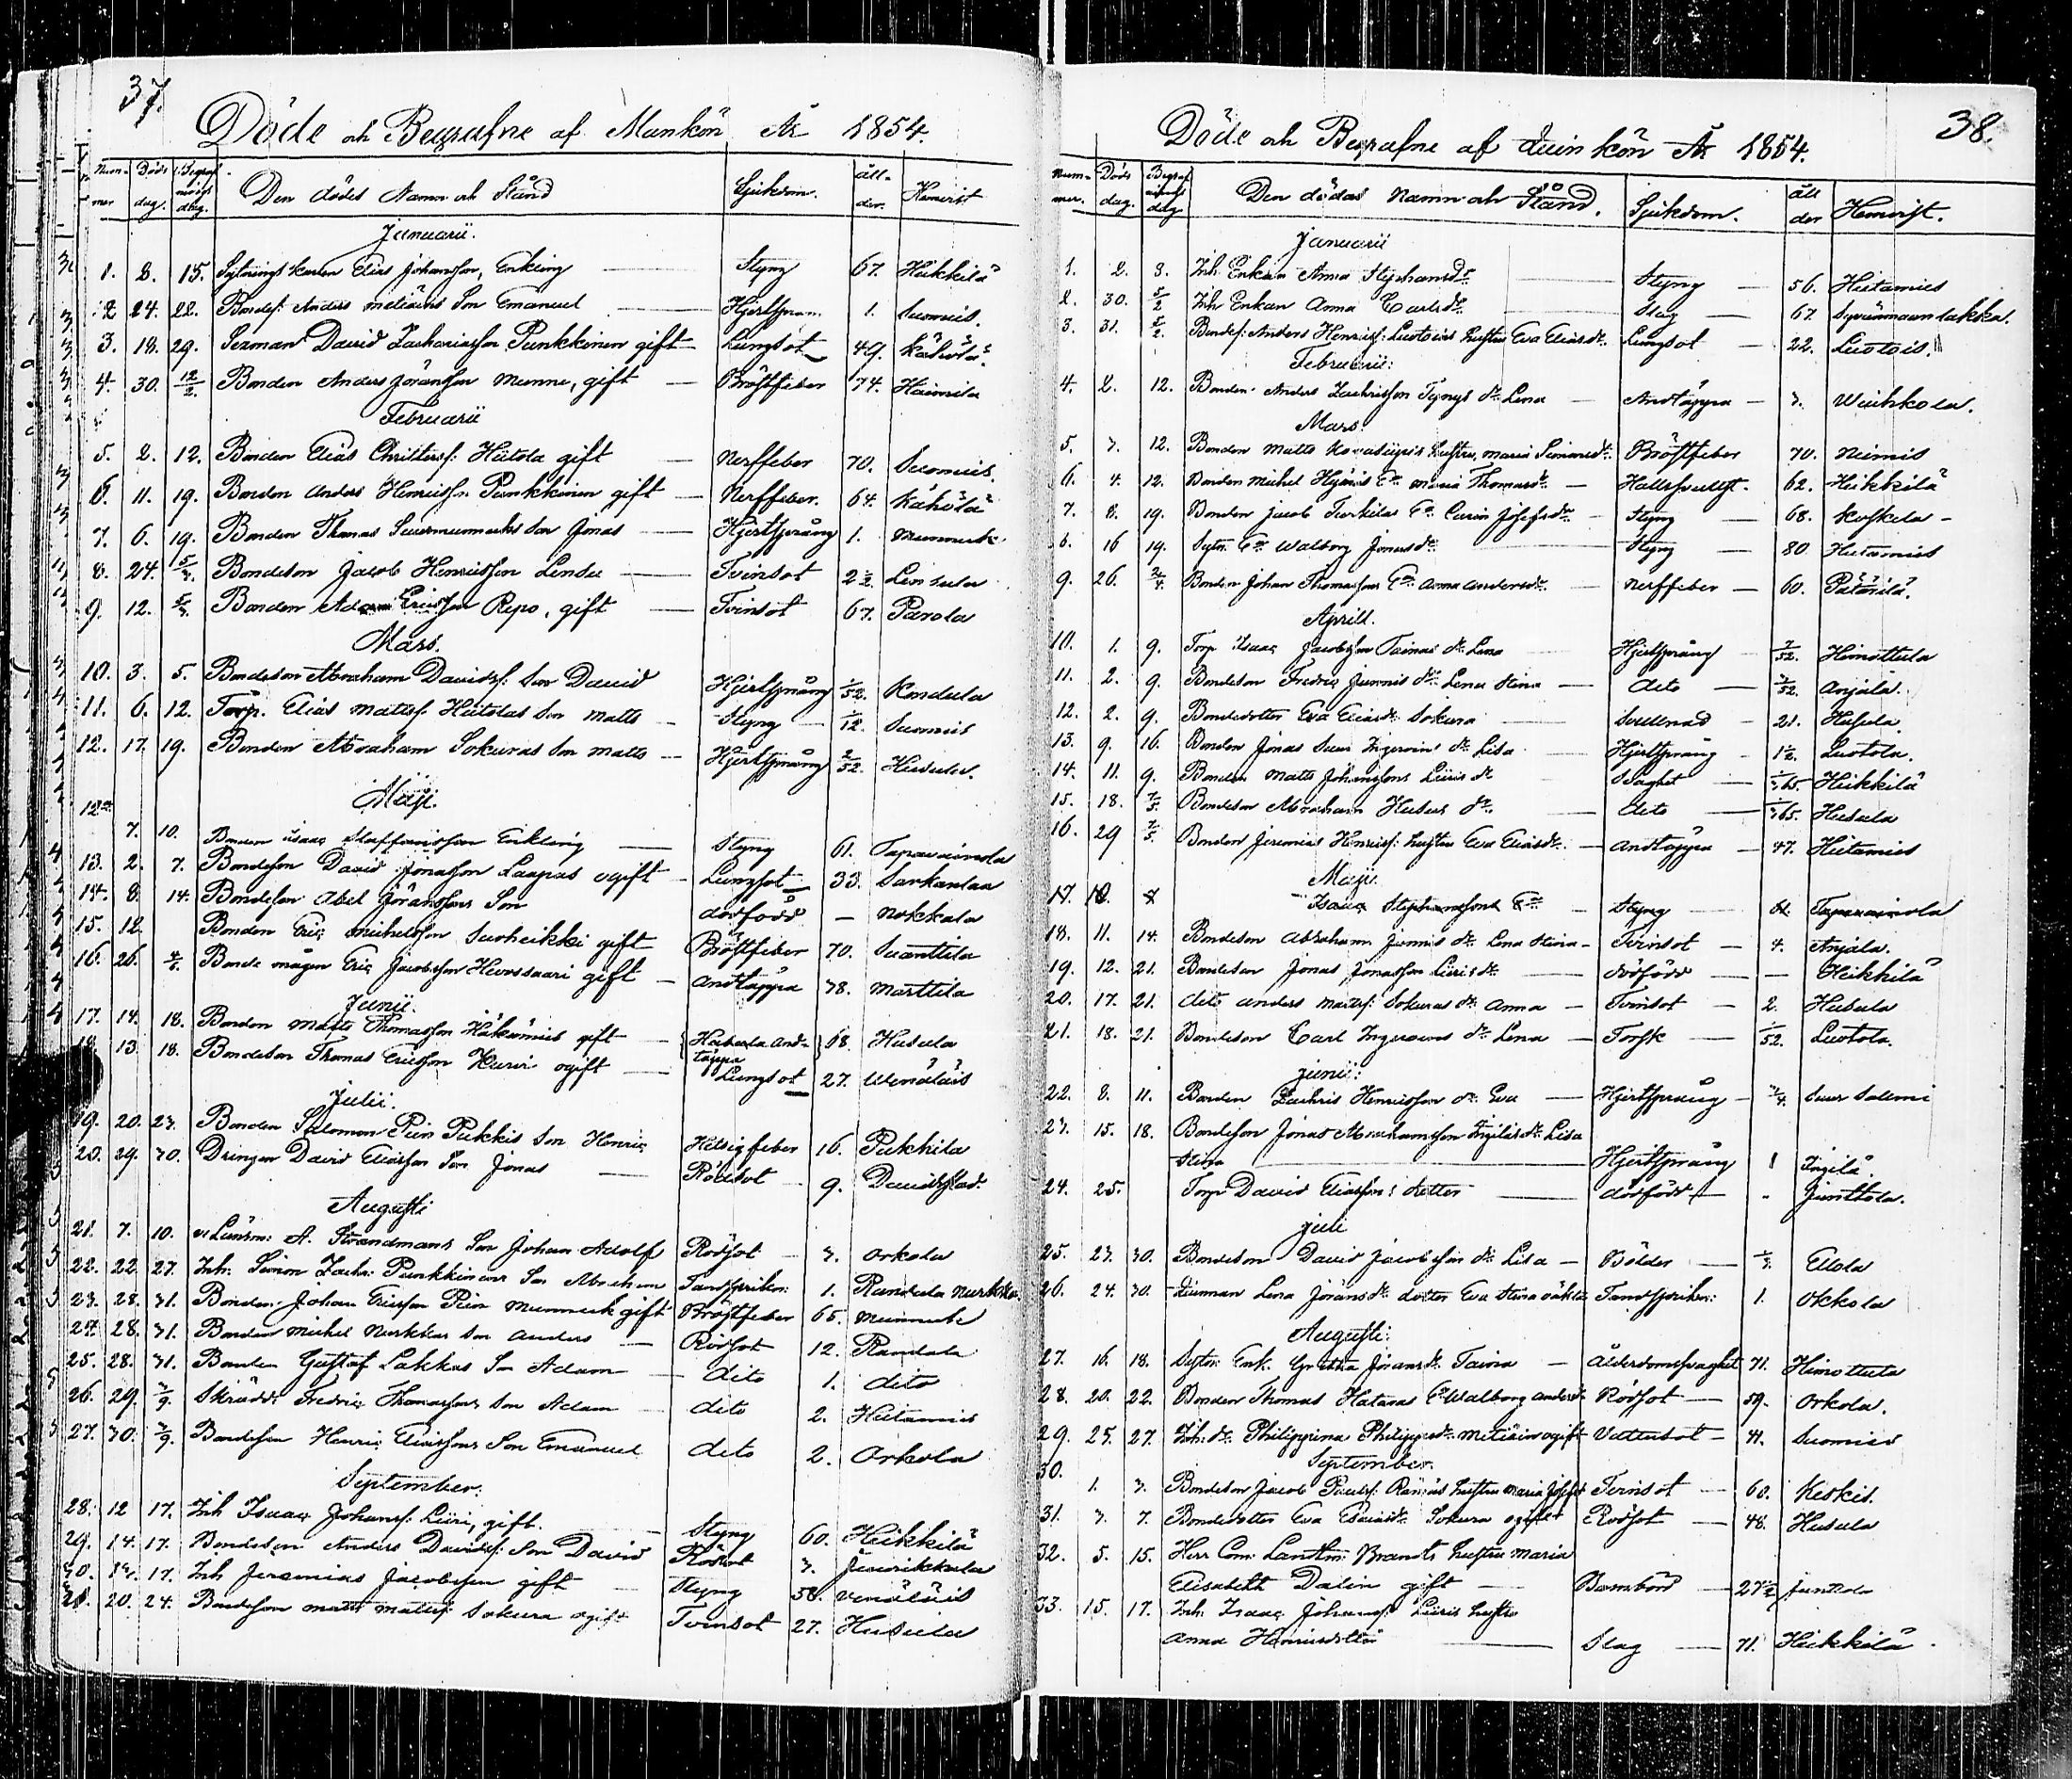 37.
Döde och Begrafne af Mankön År 1854.
Num-mer Döds dag. Begrafnings dag. Den dödes Namn och Stånd Sjukdom. Ålder. Hemvist
Januarii.
1. 2. 15. Sytnings karlen Elias Johansson, Enkling Styng 67. Heikkilä
2 24. 22. Bondes. Anders Metiäinis Son Emanuel Hjertspran. 1. Suomis.
3. 18. 29. Sexman David Zachariasson Punkkinen gift Lungsot 49. Kähölä.
4. 30. 12/2. Bonden Anders Göransson Munne, gift Bröstfeber 74. Haimila
Februarii
5. 2. 12. Bonden Elias Christersf: Hütola gift Nerffeber 70. Suomis.
6. 11. 19. Bonden Anders Henricsson Punkkinen gift Nerffeber. 64. Kähölä
7. 6. 19. Bonden Thomas Son Jonas Hjertsprång 1. Mummuk
8. 24. 5/3. Bondeson Jacob Henricsson Lensu Tvinsot 2 1/2. Lensula
9. 12. 5/3. Bonden Adam Ericsson Repo, gift Tvinsot 67. Parola
Mars.
10. 3. 5. Bondeson Abraham Davidsf. Son David Hjertsprång 1/52. Kondula
11. 6. 12. Torp. Elias Mattsf. Hütolas Son Matts Styng 1/12. Suomis
12. 17. 19. Bonden Abraham Sokuras Son Matts Hjertsprång 2/52. Husula.
Maji.
12
7. 10. Bonden Isaac Staffansson Enkling Styng 61. Tapavainola
13. 2. 7. Bondeson David Jönasson Laapas ogift Lungsot 33. Sarkanlaa
14. 8. 14. Bondeson Abel Göranssons Son dödfödd — Nokkala
15. 12. Bonden Eric Michelsson Suoheikki gift Bröstfeber 70. Suanttila
16. 26. 4/6. Bonde mågen Eric Jacobsson Huossaari gift Andtäppa 38. Marttila
Junii.
17. 14. 18. Bonden Matts Thomasson Häkämies gift Andtäppa 68. Husula
18. 13. 18. Bondeson Thomas Ericsson Kurvi ogift Lungsot 27. Wenäläis
Julii.
19. 20. 23. Bonden Salomon Pien Pukkis Son Henric Hetsigfeber 16. Pukkila
20. 29. 30. Drängen David Eliasson Son Jonas Rödsot 9. Davidstad.
Augusti
21. 7. 10. v. Länsm: A. Strandmans Son Johan Adolf Rödsot 3. Orkola
22. 22. 27. Inh. Simon Zachr: Punkkinens Son Abraham Tandspriken: 1. Randala
23. 28. 31. Bonden Johan Ericsson Pien Mummuk gift Bröstfeber 65. Mummuk
24. 28. 31. Bonden Michel Nurkkas Son Anders Rödsot 12. Randala
25. 28. 31. Bonden Gustaf Lakkas Son Adam dito 1. dito
26. 29. 3/9. Skrädd: Fredric Thomassons Son Adam dito 2. Hietamies
27. 30. 3/9. Bondeson Henric Eliassons Son Emanuel dito 2. Orkola
September.
28. 12 17. Inh Isaac Johansf. Liiri, gift. Styng 60. Heikkilä
29. 14. 17. Bondeson Anders Davidsf: Son David Rödsot 3. Juurikkala
30. 17. Inh Jeremias Jacobsson gift Styng 58. Venäläis
31. 20. 24. Bondeson Matts Mattsf. Sokura ogift Tvinsot 27. Husula
38.
Döde och Begrafne af Quin kön År 1854.
Num-mer. Döds dag. Begrafnings dag Den dödas Namn och Stånd. Sjukdom. Ålder Hemvist.
Januarii
1. 2. 8. Inh. Enkan Anna Stephansdr Styng 56. Hietamies
2. 30. 5/2 Inh Enkan Anna Carlsdr. Slag 67.
3. 31. 5/2. Bondes: Anders Henricsf: Luotois hustru Eva Eliasdr. Lungsot 22. Luotois.
Februarii:
4. 2. 12. Bonden Anders Zachrisson Tynys dr Lena Andtäppa 3. Weichkola.
Mars
5. 3. 12. Bonden Matts hustru Maria Simonsdr. Bröstfeber 70. Niemis
6. 4. 12. Bonden Michel Enk Maria Thomasdr. Hallssvullst. 62. Heikkilä
7. 8. 19. Bonden Jacob Turkilas Ea Carin Josefsdr Styng 68. Koskela
8. 16 19. Sytn. Ea Walborg Jonasdr. Styng 80. Hietamies
9. 26. 2/4. Bonden Johan Thomassons Ea Anna Andersdr. Nerffeber 60. Pätärilä.
Aprill.
10. 1. 9. Torp. Isaac Jacobsson Tainas dr Lena Hjertsprång 3/52. Himottula
11. 2. 9. Bondeson Fredric Junnis dr Lena Stina dito 3/52. Anjala.
12. 2. 9. Bondedotter Eva Eliasdr Sokura 21. Husula.
13. 9. 16. Bonden Jonas Suur Ingervins dr Lisa Hjertsprång 1 1/2. Luotola.
14. 11. 9. Bonden Matts Johanssons Liiris dr Svaghet 1/365. Heikkilä
15. 18. 7/5. Bondeson Abraham Husus dr. dito 1/365. Husula
16. 29 7/5. Bonden Jeremias Henricsf. hustru Eva Eliasdr. Andtäppa 47. Hietamies
Maji.
17. Isaac Stephanssons Ea Styng Tapavainola
18. 11. 14. Bondeson Abraham Junnis dr Lena Stina Tvinsot 4. Anjala.
19. 12. 21. Bondeson Jonas Jonasson Liiris dr dödfödd — Heikkilä
20. 17. 21. dito Anders Mattsf. Sokuras dr Anna Tvinsot 2. Husula
21. 18. 21. Bondeson Carl Ingervins dr Lena Torsk 1/52. Luotola.
Junii:
22. 8. 11. Bonden Zachris Henricsson dr Eva Hjertsprång 3/4. Suur Salemi
23. 15. 18. Bondeson Jonas Abrahamsson Ingiläs dr Lisa
Stina Hjertsprång 1 Ingilä.
24. 25. Torp David Eliassons dotter dödfödd - Junttola.
Juli
25. 23. 30. Bondeson David Jacobsson dr Lisa Bölder 1/3. Ellola
26. 24. 30. Qvinnan Lena Jöransdr dotter Eva Stina oäkta Tandspriken: 1. Okkola
Augusti:
27. 16. 18. Sytn: Enk. Gretha Jöransdr Taina Ålderdomssvaghet 71. Himottula
28. 20. 22. Bonden Thomas Hatanas Ea Walborg Andersdr Rödsot 59. Orkola.
29. 25. 27. Inh. dr Philippina Philippsdr. Metiäin ogift Vattusot 41. Suomis
September.
30. 1. 3. Bondeson Jacob Paulsf. hustru Maria Josefsd Tvinsot 60. Keskis.
31. 3. 7. Bondedotter Eva Esaiasdr Sokura ogift Rödsot 48. Husula
32. 5. 15. Herr Com: Landtm: Brandts hustru Maria
Elisabeth Dalin gift Barnbörd 27 1/2 Junttola
33. 15. 17. Inh. Isaac Johansf. Liiris hustru
Anna Henricsdotter Slag 71. Heikkilä